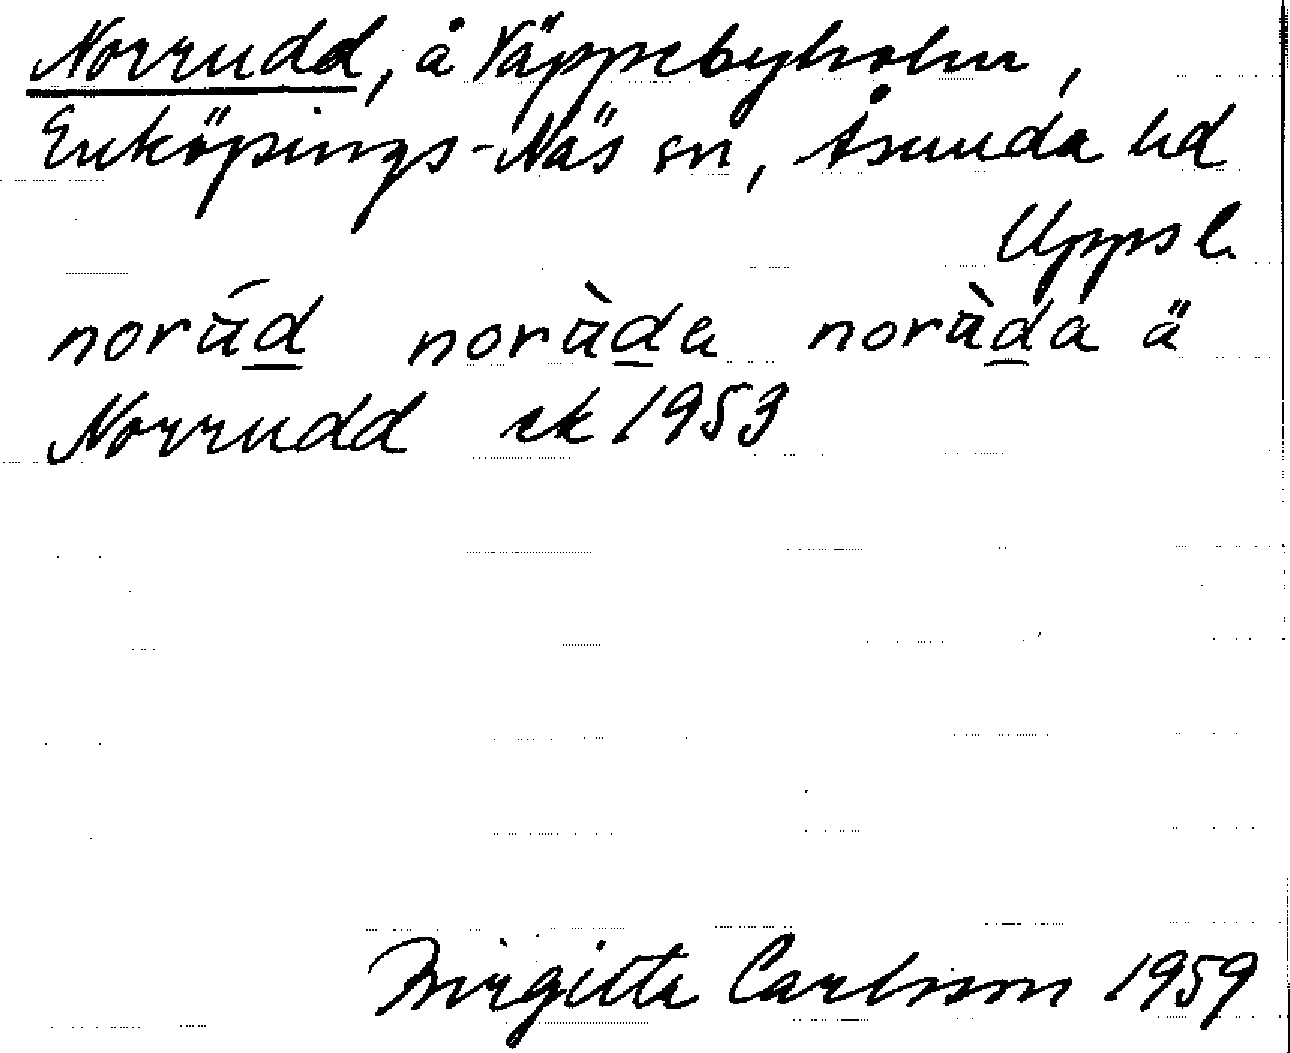 Norrudd, å Väppebyholm,
Enköpings-Näs sn, Åsunda hd
Upps l.
norád noràda noràda ä
Norrudd ek 1953
Birgitta Carlsson 1959